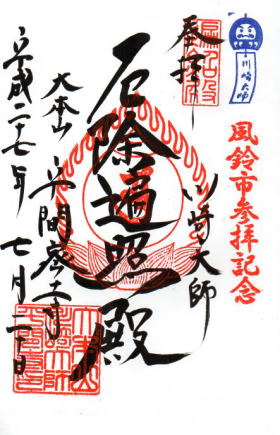 川崎大師
風鈴市参拝記念
奉拝
川崎大師
厄除遍照殿
大本山
平間寺
平成二十七年七月二十日